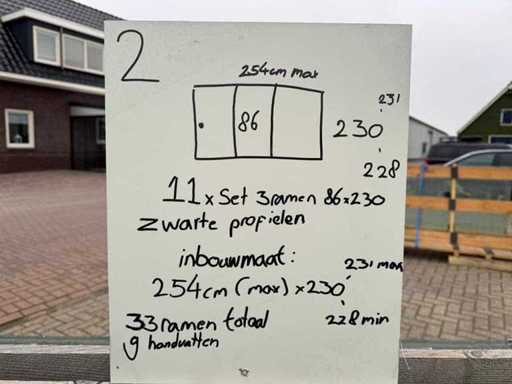 2
254cm max
86
231
230
228
11 x Set 3 ramen 86x230
Zwarte profielen
inbouwmaat:
231 max
254cm (max) x 230
228 min
33 ramen totaal
9 handvatten